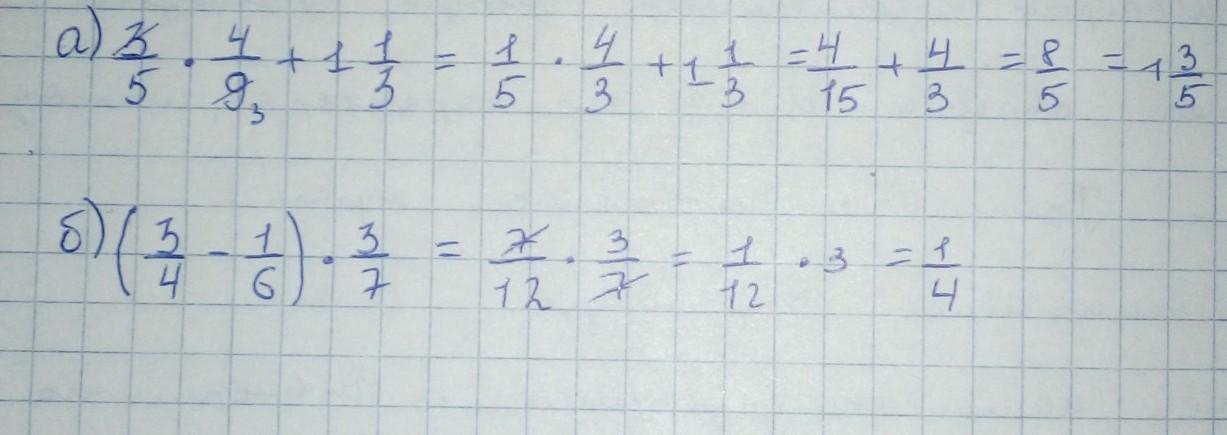 а) 3/5 · 4/9 3 + 1 1/3 = 1/5 · 4/3 + 1 1/3 = 4/15 + 4/3 = 8/5 = 1 3/5
б) (3/4 - 1/6) · 3/7 = 7/12 · 3/7 = 1/12 · 3 = 1/4